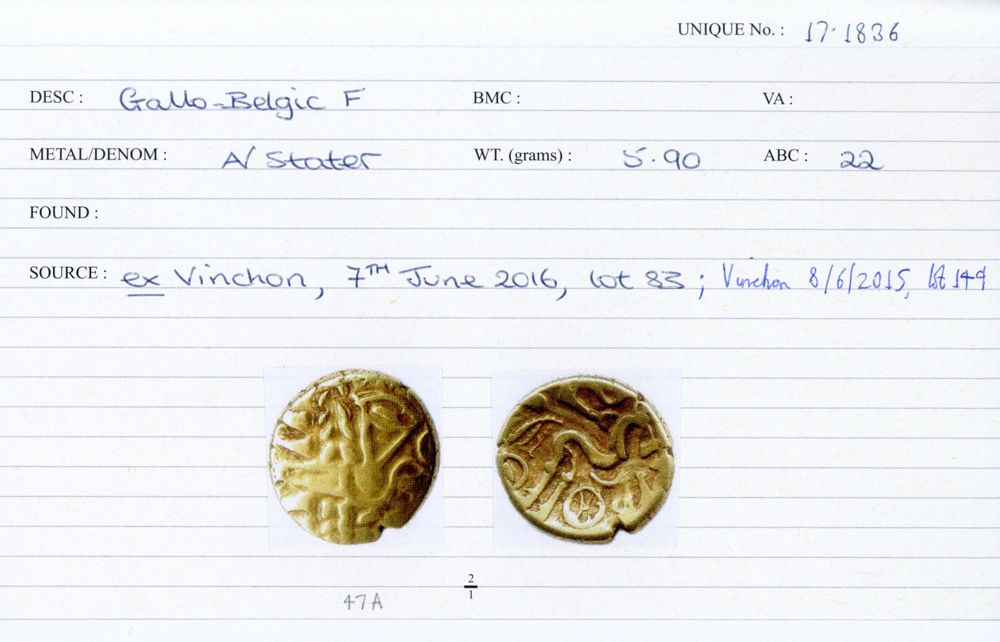 UNIQUE No. : 17.1836
DESC : Gallo-Belgic F BMC : VA :
METAL/DENOM : A/ Stater WT. (grams) : 5.90 ABC : 22
FOUND :
SOURCE : ex Vinchon, 7TH June 2016, lot 83 ; Vinchon 8/6/2015, lot 149
2
1
47A